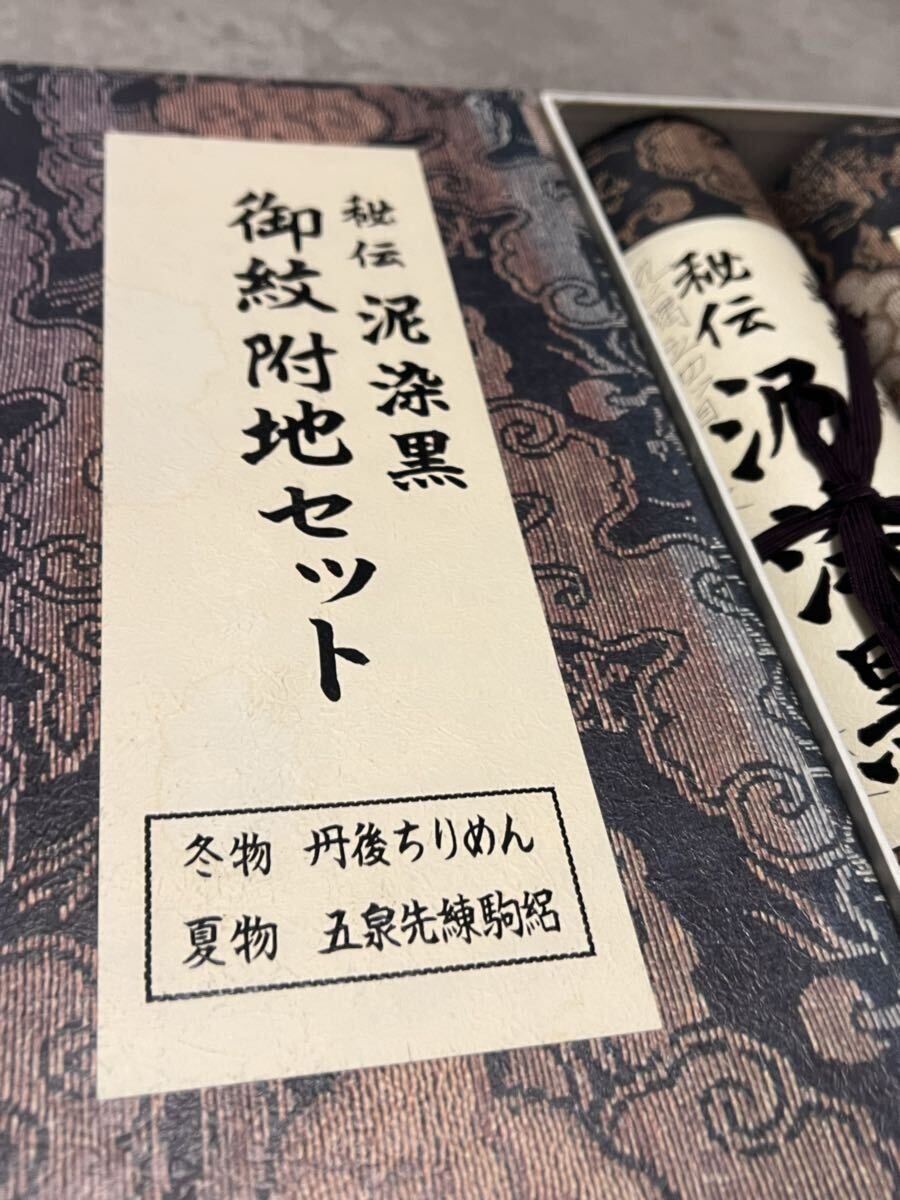 秘伝 泥染黒
御紋附地セット
冬物 丹後ちりめん
夏物 五泉先練駒絽
秘伝
泥染黒